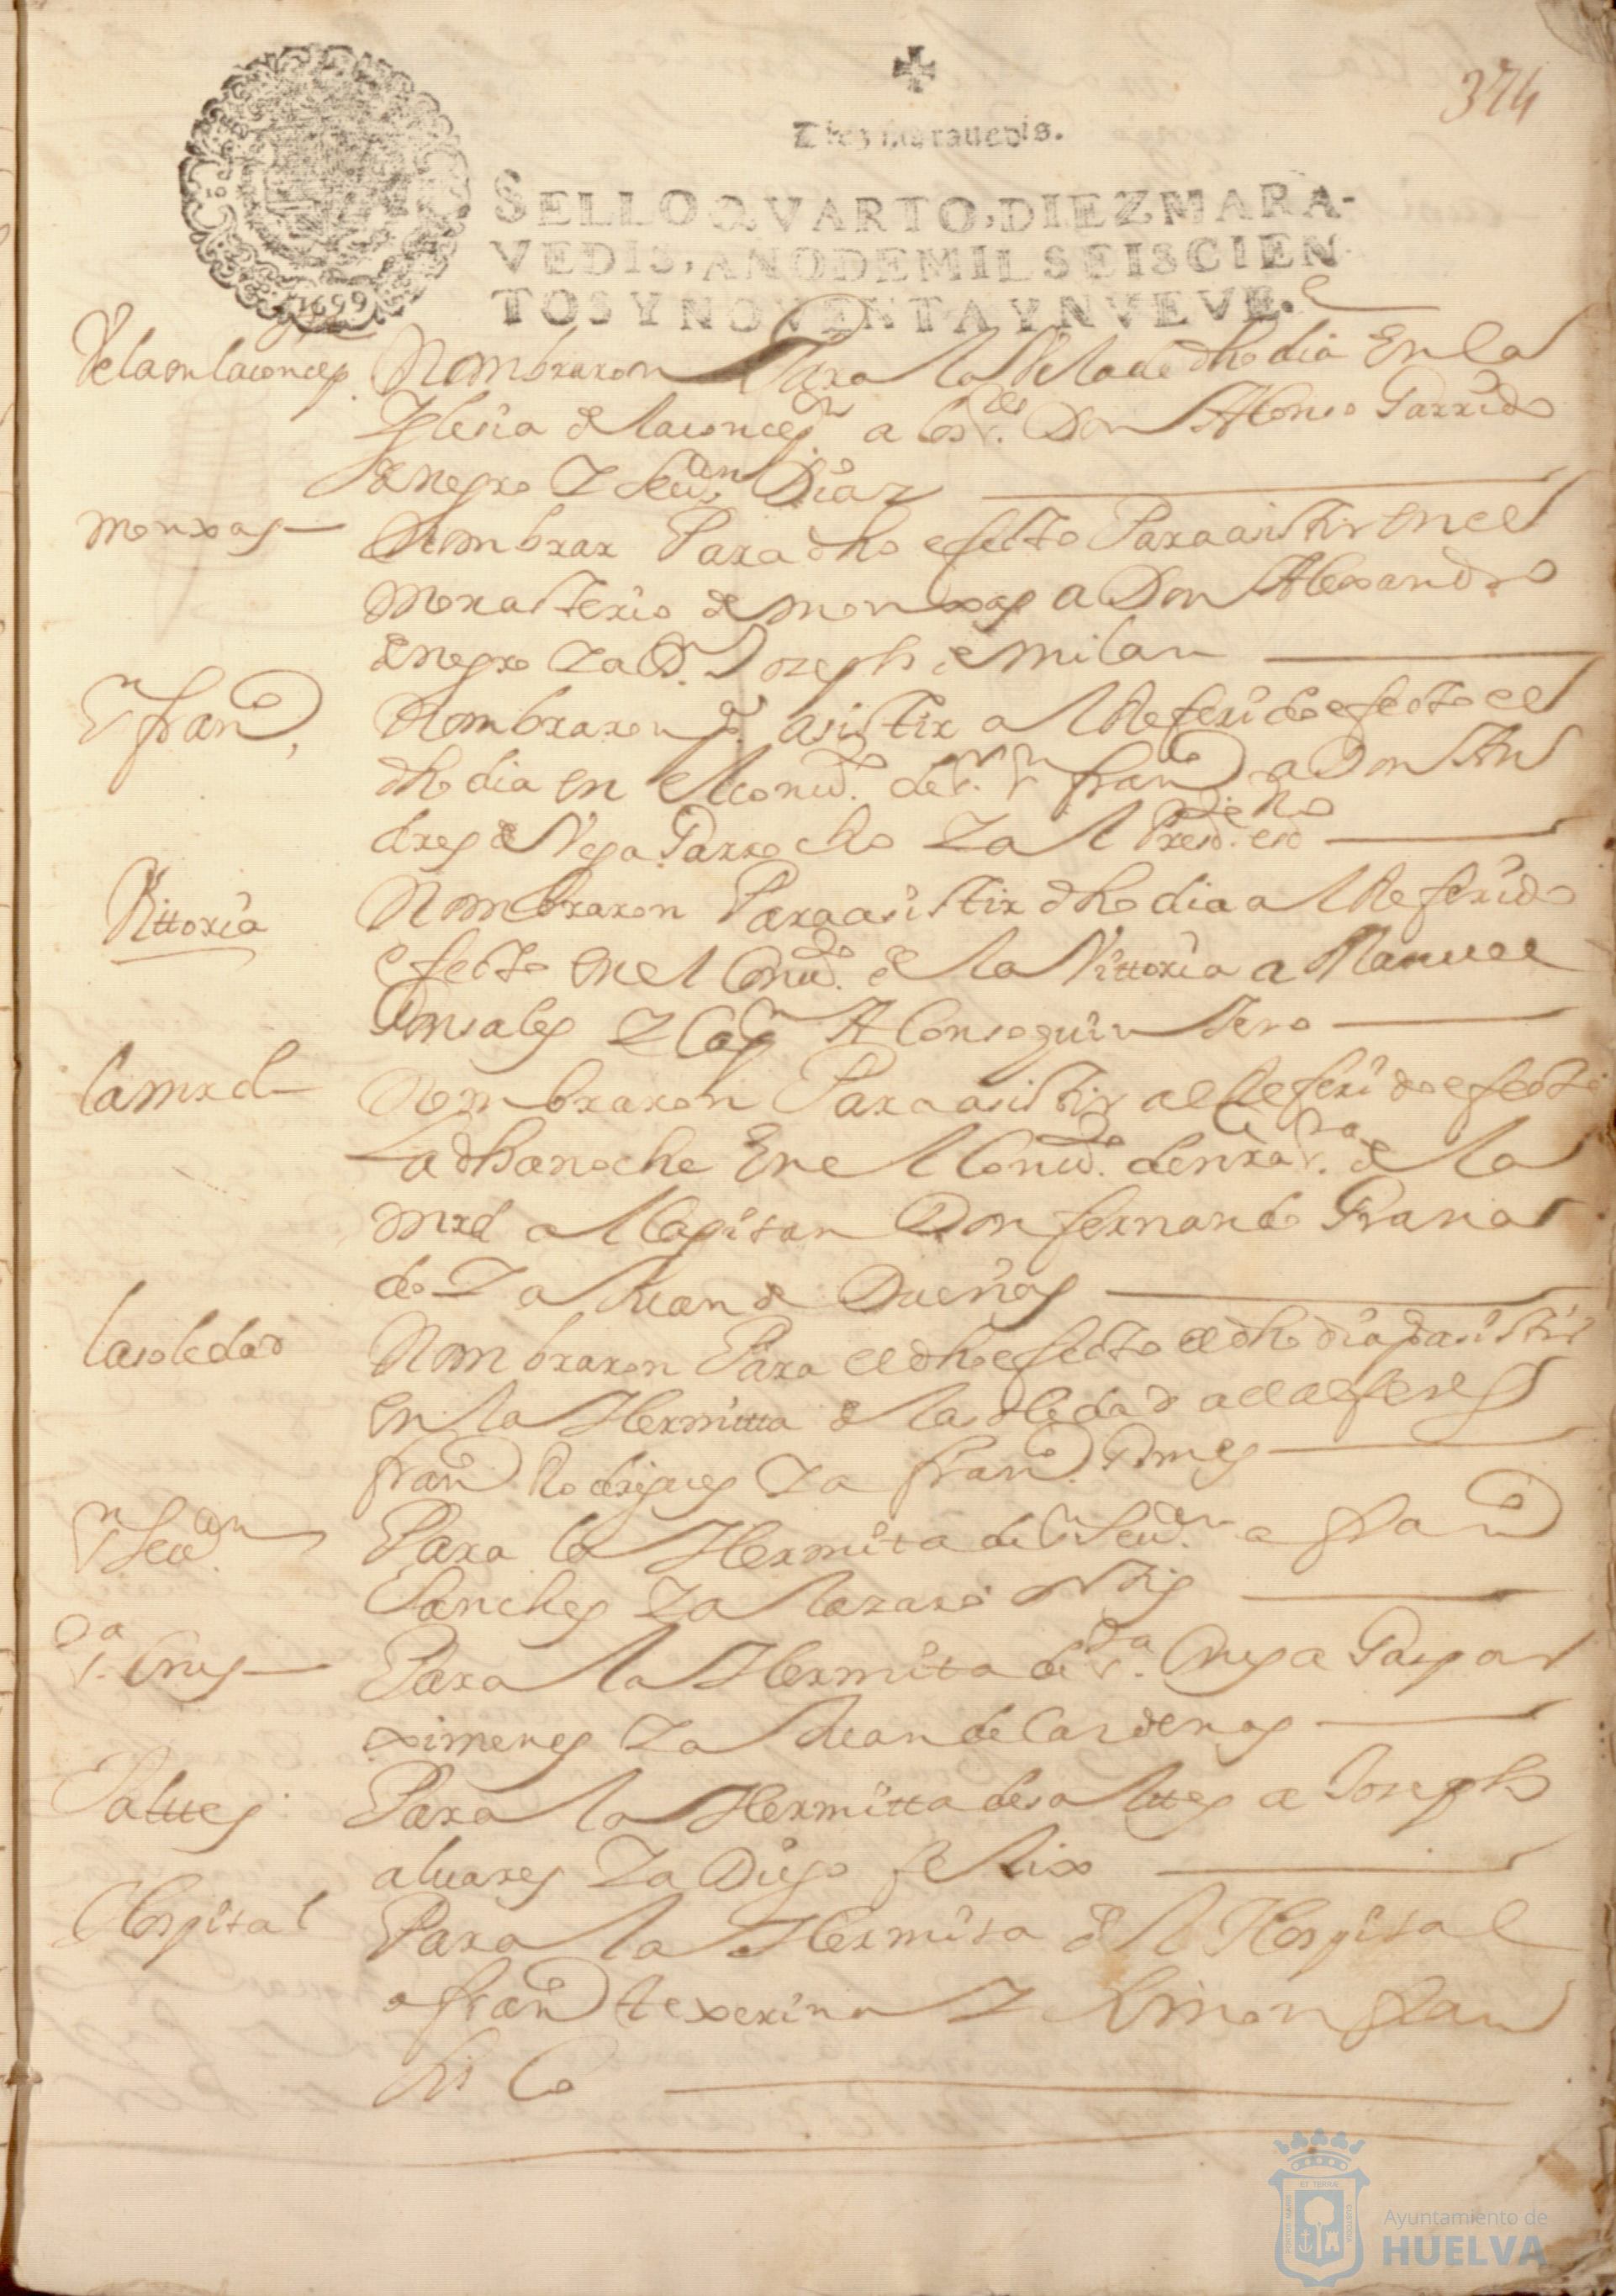 374
Diez marauedis.
SELLO QVARTO, DIEZ MARA-
VEDIS, AÑO DE MIL SEISCIEN
TOS Y NOVENTA Y NVEVE.
1699
Vela en laconcepn Nombraron Para la Vela de dho dia En la
Yglesia de laconcepn a los sres Don Alonso Garrido
de negro Y seuan Dias
monxas Nombrar Para dho efecto Para asistir en el
monasterio de monxas a Don Alexandro
de negro Y a D. Joseph de milan
Sn franco Nombraron pa asistir al Referido efecto el
dho dia en el conudo de sr Sn franco a Don An
dres de Vega Garrocho Y al Presde esno
Vittoria Nombraron Para asistir dho dia al Referido
efecto en el Conudo de la Vittoria a Manuel
Gonsales Y Capn Alonso quintero
la mrd Nombraron Para asistir al Referido efecto
La dha noche En el Conudo de nra sra de la
mrd al Capitan Don fernando Grana
do Y a Juan de Dueñas
la soledad Nombraron Para el dho efecto el dho dia pa asistir
en la Hermitta de la soledad al alferes
franco Rodrigues Y a franco Gomes
Sn Seuan Para la Hermita de Sn Seuan a franco
Sanches Y a lazaro ortis
Sta Crus Para la Hermita de sta Crus a Gaspar
ximenes Y a Juan de Cardenas
Saltes Para la Hermitta de saltes a Joseph
aluares Y a Diego felix
Hospital Para la Hermita del Hospital
a franco texerina Y Simon fran
sisco
Ayuntamiento de
HUELVA